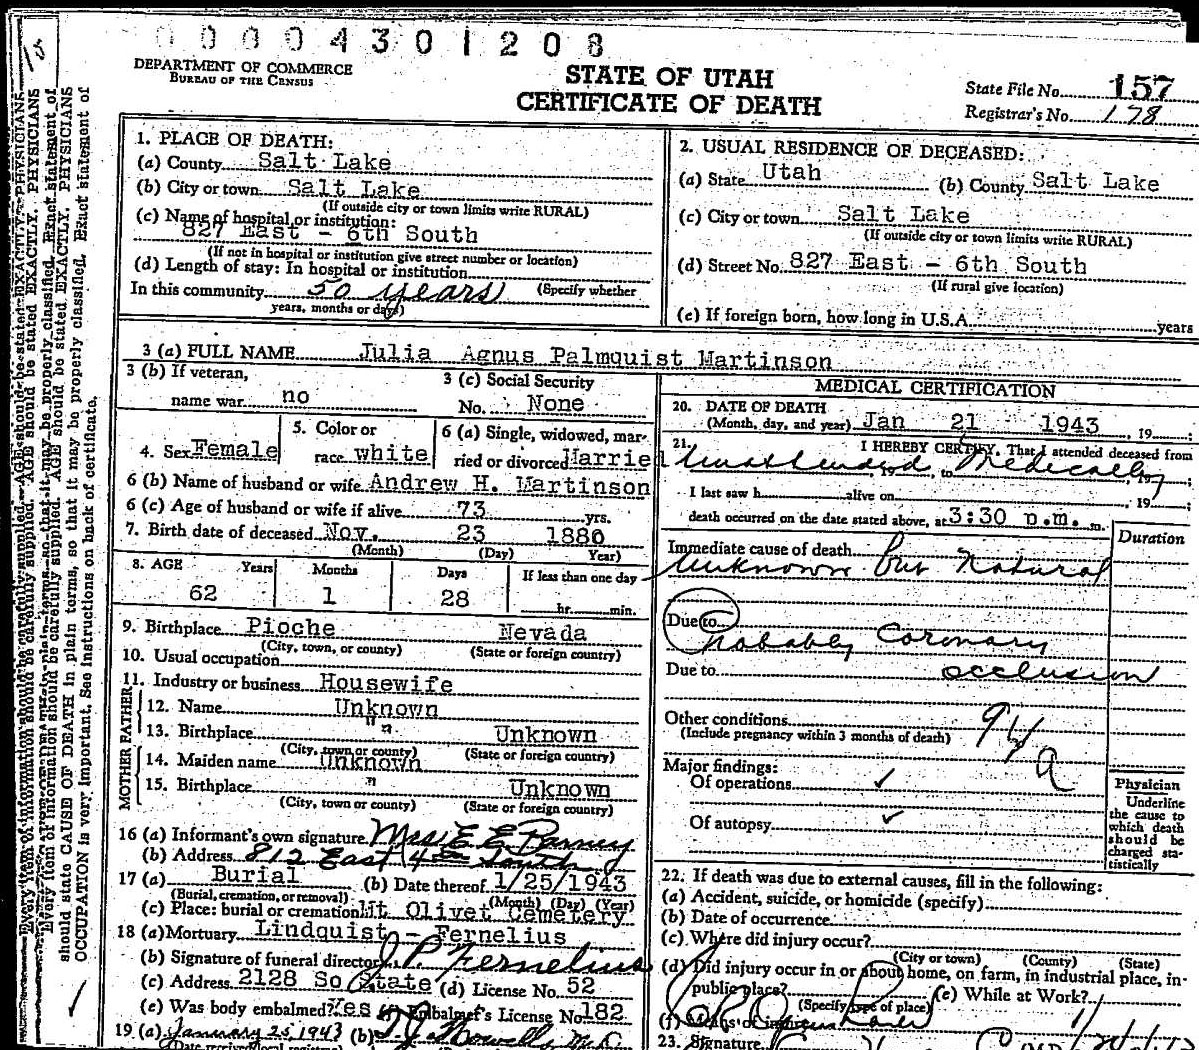 00004301208
DEPARTMENT OF COMMERCE
BUREAU OF THE CENSUS
STATE OF UTAH
CERTIFICATE OF DEATH
State File No. 157
Registrar's No. 178
1. PLACE OF DEATH:
(a) County Salt Lake
(b) City or town Salt Lake
(If outside city or town limits write RURAL)
(c) Name of hospital or institution:
827 East - 6th South
(If not in hospital or institution give street number or location)
(d) Length of stay: In hospital or institution
In this community 50 years (Specify whether
years, months or days)
2. USUAL RESIDENCE OF DECEASED:
(a) State Utah (b) County Salt Lake
(c) City or town Salt Lake
(If outside city or town limits write RURAL)
(d) Street No. 827 East - 6th South
(If rural give location)
(e) If foreign born, how long in U.S.A. years
3 (a) FULL NAME Julia Agnus Palmquist Martinson
3 (b) If veteran,
name war no
3 (c) Social Security
No. None
4. Sex Female
5. Color or
race white
6 (a) Single, widowed, mar-
ried or divorced Marrie
6 (b) Name of husband or wife Andrew H. Martinson
6 (c) Age of husband or wife if alive 73 yrs.
7. Birth date of deceased Nov. 23 1880
(Month) (Day) Year)
8. AGE Years Months Days If less than one day
62 1 28 hr. min.
9. Birthplace Pioche Nevada
(City, town, or county) (State or foreign country)
10. Usual occupation
11. Industry or business Housewife
FATHER
12. Name Unknown
13. Birthplace " " Unknown
(City, town or county) (State or foreign country)
MOTHER
14. Maiden name Unknown
15. Birthplace " Unknown
(City, town or county) (State or foreign country)
16 (a) Informant's own signature Mrs E E Barney
(b) Address 812 East 4th South
17 (a) Burial (b) Date thereof 1/25/1943
(Burial, cremation, or removal) (Month) (Day) (Year)
(c) Place: burial or cremation Mt Olivet Cemetery
18 (a) Mortuary Lindquist - Fernelius
(b) Signature of funeral director J. P. Fernelius
(c) Address 2128 So State (d) License No. 52
(e) Was body embalmed? Yes (f) Embalmer's License No. 182
19 (a) January 25, 1943 (b)
MEDICAL CERTIFICATION
20. DATE OF DEATH
(Month, day, and year) Jan 21 1943, 19
21. I HEREBY CERTIFY, That I attended deceased from
Unattended Medically
I last saw h alive on , 19
death occurred on the date stated above, at 3:30 p.m. m.
Duration
Immediate cause of death
Unknown but Natural
Due to
Probably Coronary
Due to occlusion
Other conditions
(Include pregnancy within 3 months of death)
94 a
Major findings:
Of operations ✓
Of autopsy ✓
Physician
Underline
the cause to
which death
should be
charged sta-
tistically
22. If death was due to external causes, fill in the following:
(a) Accident, suicide, or homicide (specify)
(b) Date of occurrence
(c) Where did injury occur?
(City or town) (County) (State)
(d) Did injury occur in or about home, on farm, in industrial place, in
public place? (e) While at Work?
(Specify type of place)
(f) Means of injury
23. Signature
should state CAUSE OF DEATH in plain terms, so that it may be properly classified. Exact statement of
OCCUPATION is very important. See instructions on back of certificate.